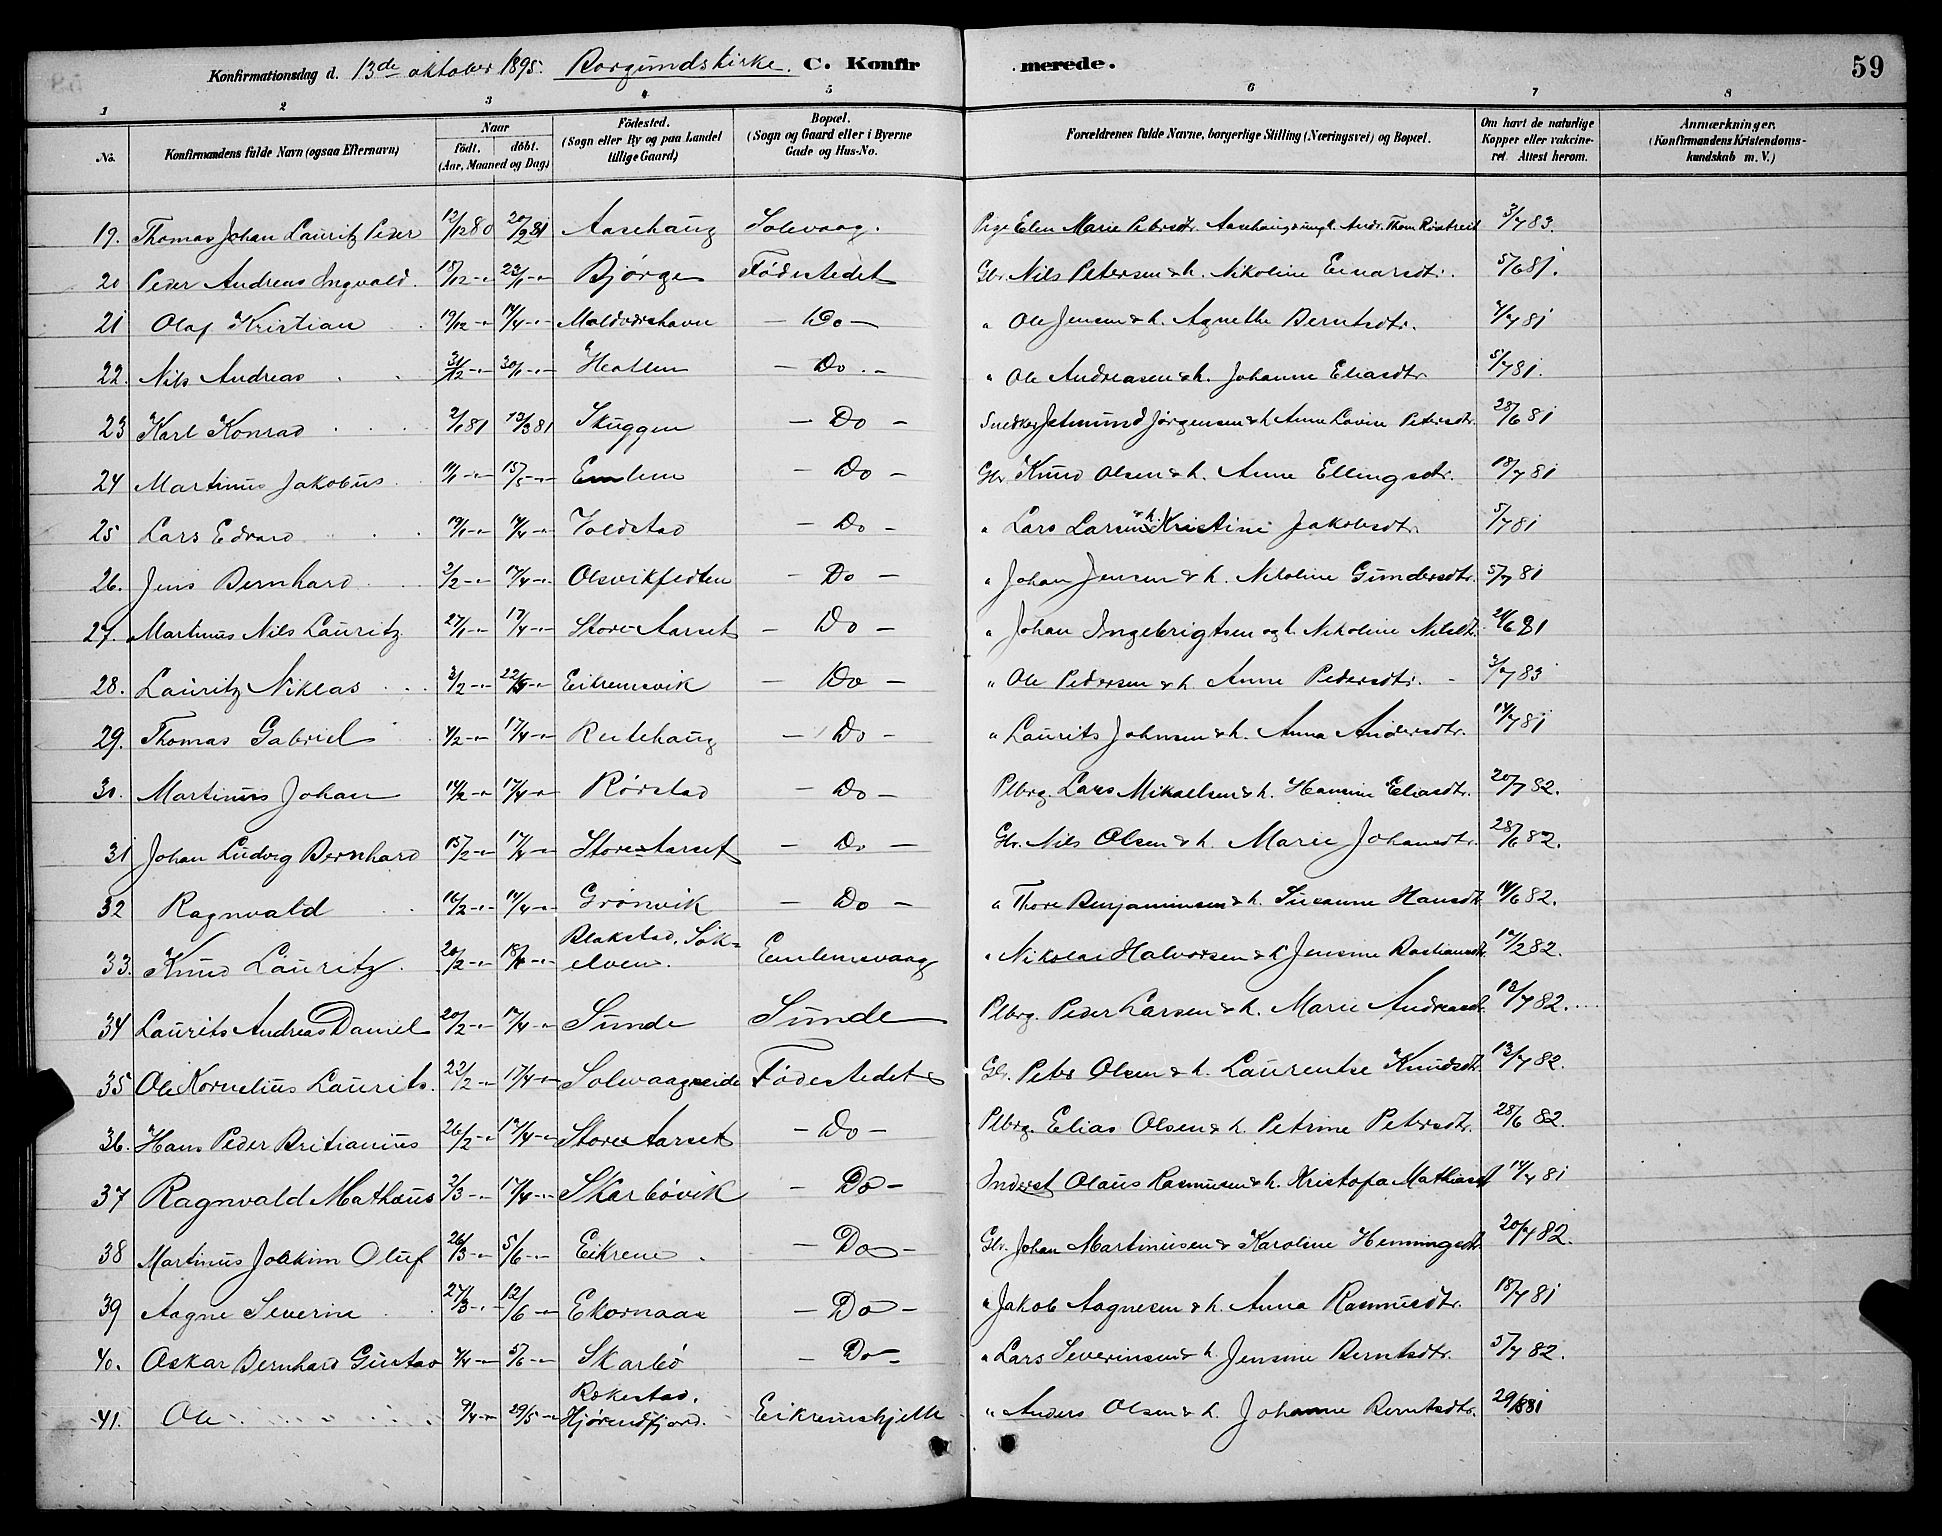 Konfirmationsdag d. 13de oktober 1895. Borgundskirke. C. Konfirmerede. 59
1 2 3 4 5 6 7 8
No. Konfirmandens fulde Navn (ogsaa Efternavn) Naar födt. döbt. (Aar, Maaned og Dag) Födested. (Sogn eller By og paa Landet tillige Gaard) Bopæl. (Sogn og Gaard eller i Byerne Gade og Hus-No. Forældrenes fulde Navne, borgerlige Stilling (Næringsvei) og Bopæl. Om havt de naturlige Kopper eller vakcineret. Attest herom. Anmærkninger. (Konfirmandens Kristendomskundskab m. V.)
19. Thomas Johan Lauritz Peder 12/12 80 20/2 81 Aasehaug Solevaag. Pige Elen Marie Petersdtr. Aasehaug & ungk. Andr. Thom. 3/7 83.
20 Peder Andreas Ingvald. 18/12 -"- 23/1 -"- Bjørge Fødestedet Gbr. Nils Petersen & h. Nikoline Einarsdtr. 5/6 81.
21 Olaf Kristian 19/12 -"- 17/4 -"- Moldværshavn - Do - " Ole Jensen & h. Agnethe Berntsdtr. 4/7 81
22. Nils Andreas 31/12 -"- 30/1 -"- Hatlen - Do - " Ole Andreasen & h. Johanne Eliasdtr. 5/7 81.
23 Karl Konrad 2/1 81 13/3 81 Skuggen - Do - Snedker Jetmund Jørgensen & h. Anne Lovise Petersdtr. 28/6 81
24 Martinus Jakobus 11/1 -"- 15/5 -"- Emlem - Do - Gbr. Knud Olsen & h. Anne Ellingsdtr. 18/7 81
25 Lars Edvard 19/1 -"- 17/4 -"- Voldstad - Do - " Lars Larsen & h. Kristine Jakobsdtr. 5/7 81
26. Jens Bernhard 2/2 -"- 17/4 -"- Olsvikfedten - Do - " Johan Jensen & h. Nikoline Gundersdtr. 5/7 81
27. Martinus Nils Lauritz 27/1 -"- 17/4 -"- Store Aarset - Do - " Johan Ingebrigtsen og h. Nikoline Nilsdtr. 21/6 81
28. Lauritz Niklas 3/2 -"- 22/5 -"- Eikremsvik - Do - " Ole Pedersen & h. Anne Pedersdtr. 3/7 83
29. Thomas Gabriel 4/2 -"- 17/4 -"- Reitehaug - Do - " Laurits Johnsen & h. Anna Andersdtr. 14/7 81
30. Martinus Johan 14/2 -"- 17/4 -"- Rørstad - Do - Plbrg. Lars Mikaelsen & h. Hansine Eliasdtr. 20/7 82.
31 Johan Ludvig Bernhard 15/2 -"- 17/4 -"- Store Aarset - Do - Gbr. Nils Olsen & h. Marie Johansdtr. 28/6 82.
32 Ragnvald 16/2 -"- 17/4 -"- Grønvik - Do - " Thore Benjaminsen & h. Susanne Hansdtr. 14/6 82.
33. Knud Lauritz. 20/2 -"- 18/4 -"- Blakstad, Søkelven. Emlemsvaag " Nikolai Halvorsen & h. Jensine Bastiansdtr. 12/2 82.
34 Laurits Andreas Daniel 20/2 -"- 17/4 -"- Sunde Sunde Plbrg. Peder Larsen & h. Marie Andreasdtr. 13/7 82.
35 Ole Kornelius Laurits. 22/2 -"- 17/4 -"- Solevaagseide Fødestedet Gbr. Peter Olsen & h. Laurentse Knudsdtr. 13/7 82.
36. Hans Peder Britianius 26/2 -"- 17/4 -"- Store Aarset - Do - Plbrg. Elias Olsen & h. Petrine Petersdtr. 28/6 82.
37 Ragnvald Mathæus 2/3 -"- 17/4 -"- Skarbøvik - Do - Inderst Olaus Rasmusen & h. Kristofa Mathiasdtr 14/7 81
38 Martinus Joakim Oluf 26/3 -"- 5/6 -"- Eikrem - Do - Gbr. Johan Martinusen & Karoline Henningsdtr. 20/7 82.
39 Aagne Severin 27/3 -"- 12/6 -"- Ekornaas - Do - " Jakob Aagnesen & h. Anna Rasmusdtr. 18/7 81
40. Oskar Bernhard Gustav 4/4 -"- 5/6 -"- Skarbø - Do - " Lars Severinsen & h. Jensine Berntsdtr. 5/7 82.
41. Ole 9/4 -"- 29/5 -"- Rekestad, Hjørendfjord. Eikremshjelle " Anders Olsen & h. Johanne Berntsdtr. 29/6 81